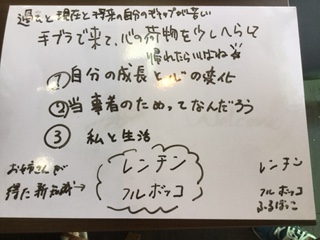 過去と現在と将来の自分のギャップが苦しい
手ブラで来て、心の荷物を少しへらして
帰れたらいいよね☆
① 自分の成長と心の変化
② 当事者のためってなんだろう
③ 私と生活
お姉さんが
得た新知識→
レンチン
フルボッコ
レンチン
フルボッコ
ふるぼっこ